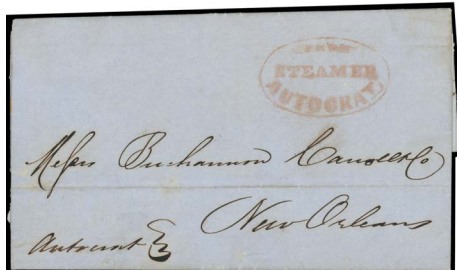 STEAMER
AUTOCRAT
Messrs Buchannon Carroll & Co
New Orleans
Autocrat